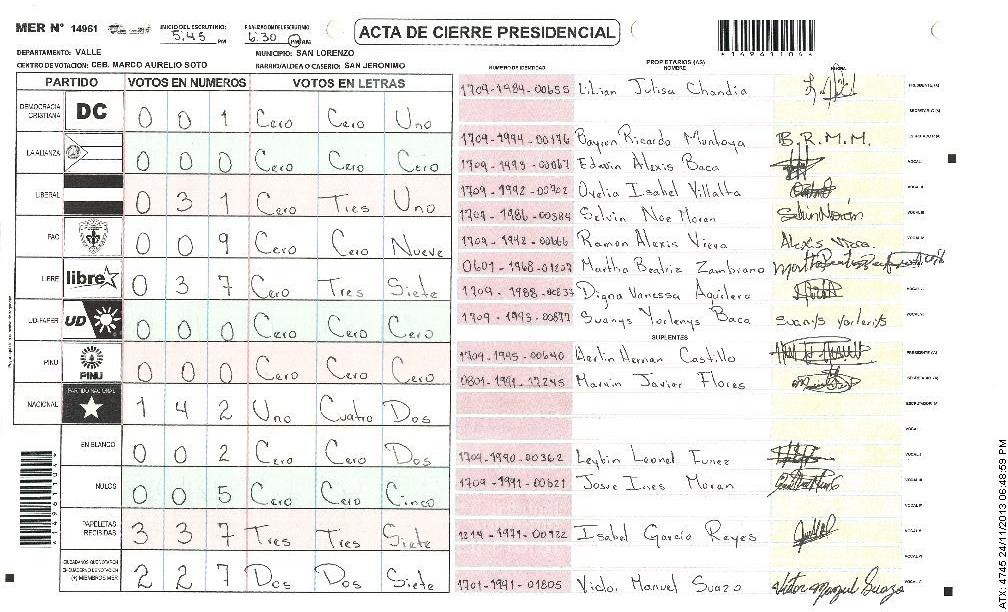 MER N° 14961
INICIO DEL ESCRUTINIO: 5:45 PM
FINALIZACION DEL ESCRUTINIO 6:30 PM AM
ACTA DE CIERRE PRESIDENCIAL
*14961104*
DEPARTAMENTO: VALLE
MUNICIPIO: SAN LORENZO
CENTRO DE VOTACION: CEB. MARCO AURELIO SOTO
BARRIO/ALDEA O CASERIO: SAN JERONIMO
PARTIDO VOTOS EN NUMEROS VOTOS EN LETRAS
DEMOCRACIA CRISTIANA DC 0 0 1 Cero Cero Uno
LA ALIANZA 0 0 0 Cero Cero Cero
LIBERAL 0 3 1 Cero Tres Uno
PAC 0 0 9 Cero Cero Nueve
LIBRE libre 0 3 7 Cero Tres Siete
UD-FAPER UD 0 0 0 Cero Cero Cero
PINU PINU 0 0 0 Cero Cero Cero
NACIONAL PARTIDO NACIONAL 1 4 2 Uno Cuatro Dos
EN BLANCO 0 0 2 Cero Cero Dos
NULOS 0 0 5 Cero Cero Cinco
PAPELETAS RECIBIDAS 3 3 7 Tres Tres Siete
CIUDADANOS QUE VOTARON EN CUADERNO DE VOTACION (+) MIEMBROS MER 2 2 7 Dos Dos Siete
NUMERO DE IDENTIDAD PROPIETARIOS (AS) NOMBRE FIRMA
1709-1984-00655 Lilian Julisa Chandia PRESIDENTE (A)
SECRETARIO (A)
1709-1994-00176 Bayron Ricardo Montoya B.R.M.M.
1709-1993-00067 Edwin Alexis Baca VOCAL I
1709-1992-00902 Ovelia Isabel Villalta VOCAL II
1709-1986-00584 Selvin Noe Moran Selvin Morán VOCAL III
1709-1942-00166 Ramon Alexis Viera Alexis Viera.
0601-1968-01207 Martha Beatriz Zambrano
1709-1988-00837 Digna Vanessa Aguilera
1709-1993-00877 Suanys Yorlenys Baca Suanys Yorlenys
SUPLENTES
1709-1945-00640 Herlin Hernan Castillo PRESIDENTE (A)
0801-1991-12245 Marvin Javier Flores SECRETARIO (A)
ESCRUTADOR (A)
VOCAL I
1709-1990-00362 Leybin Leonel Funez
1709-1991-00621 Josue Ines Moran
1214-1971-00922 Isabel García Reyes
1701-1991-01805 Victor Manuel Suazo Victor Manuel Suazo
*14961104*
ATX: 4745 24/11/2013 06:48:59 PM